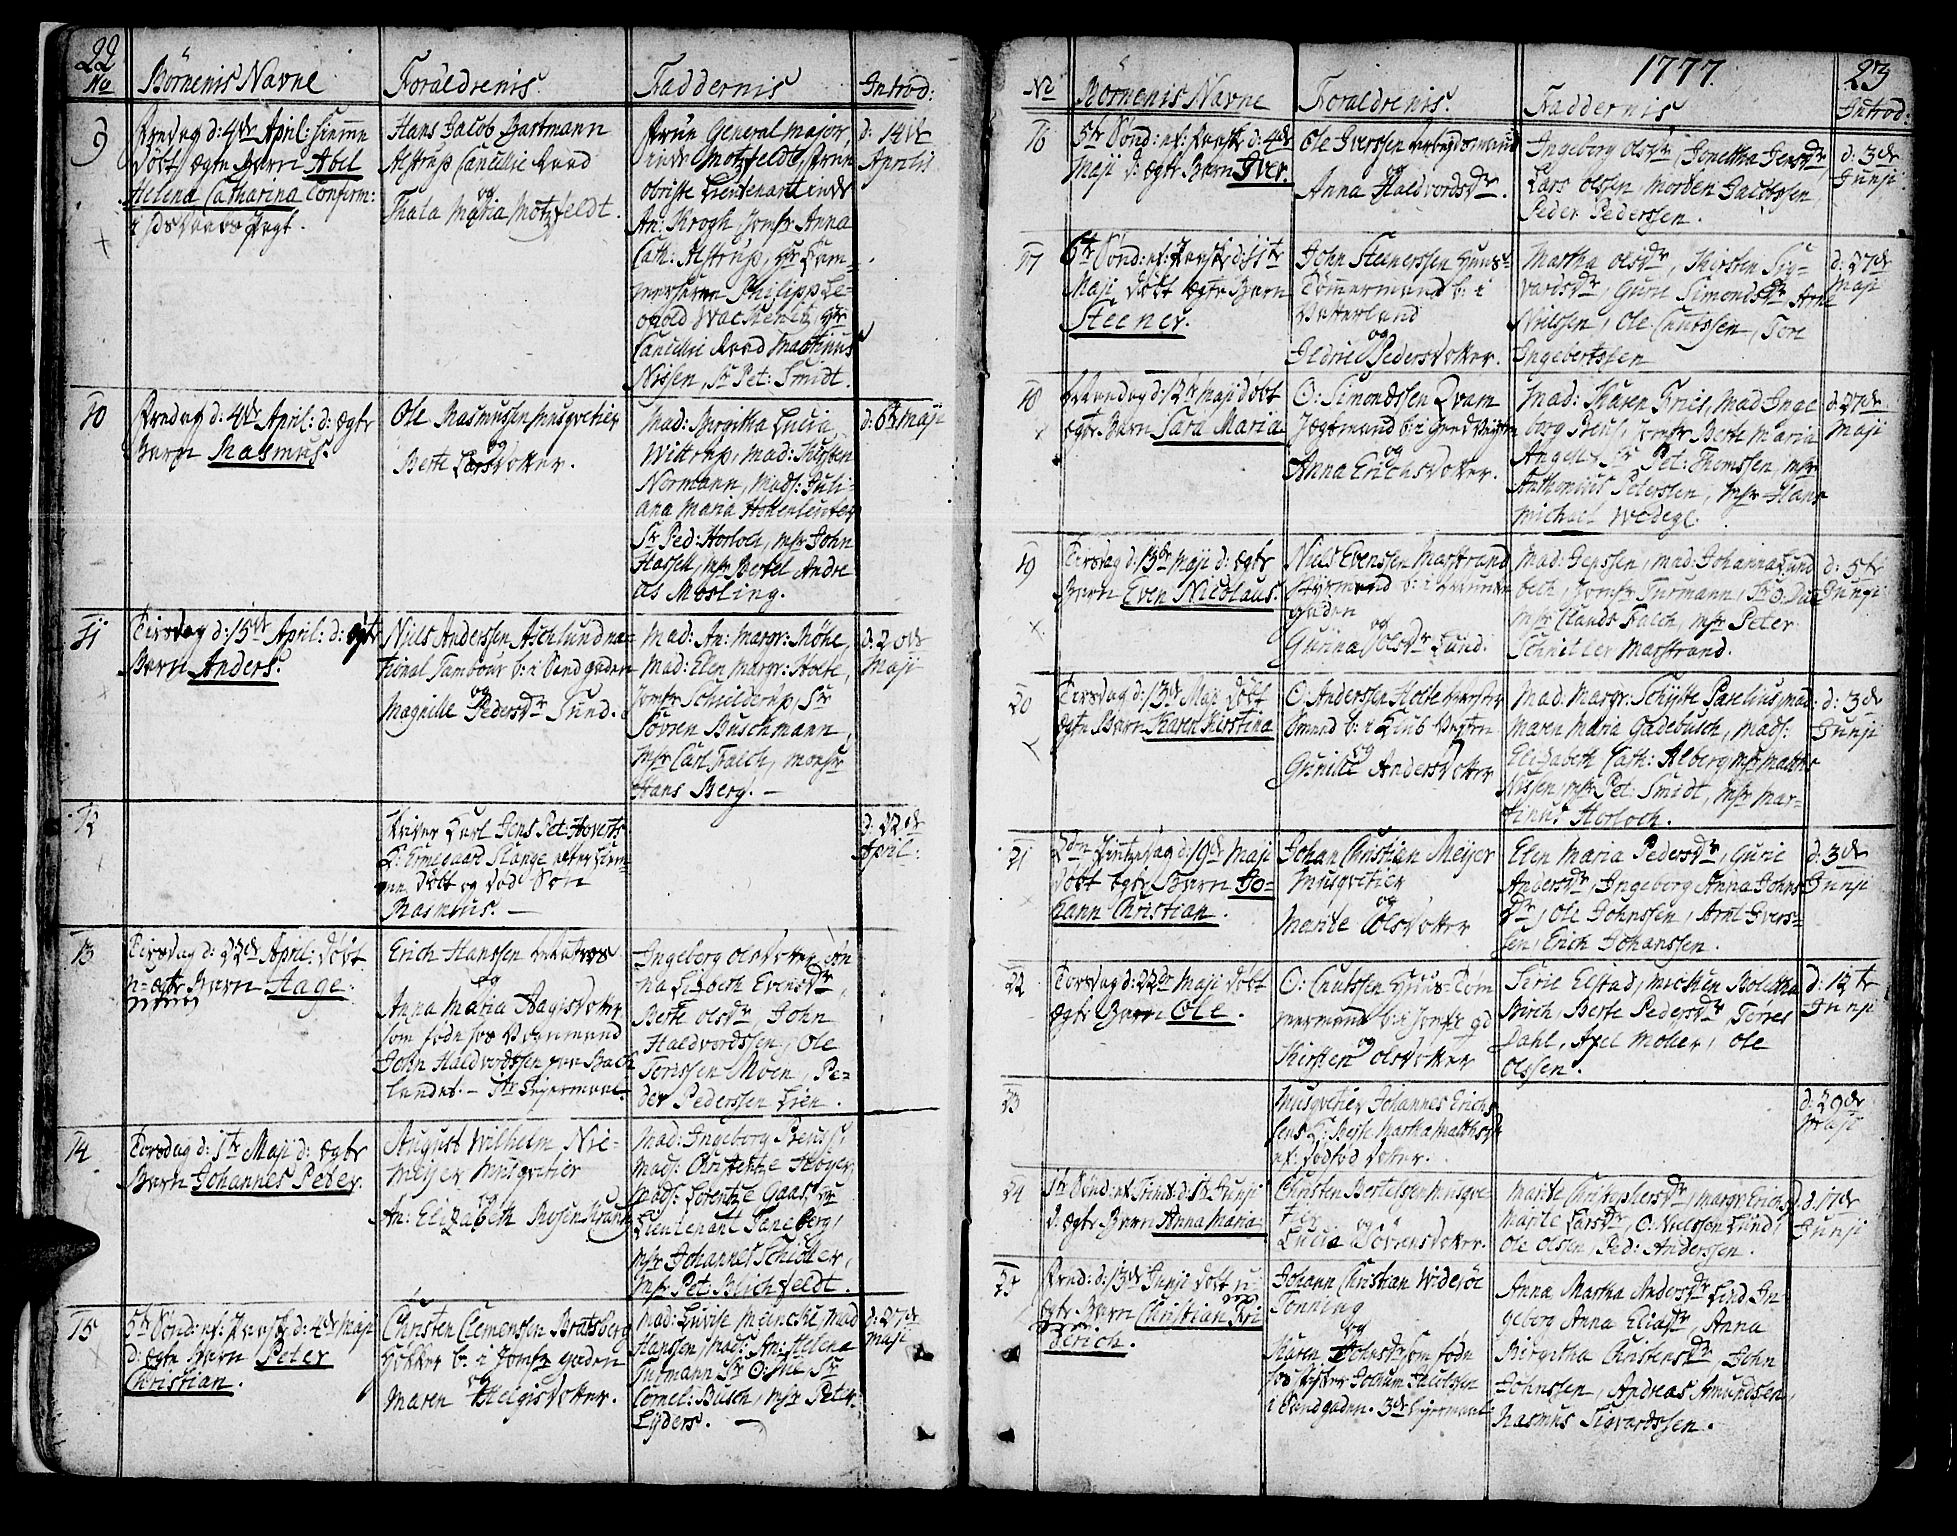 22
No
Börnenis Navne
Foraldrenis
Faddernis
Introd:
9
Fredag d: 4de April: hiemme
döbt ægte Barn Abel
Helena Catharina Confirm:
Hans Jacob Hartmann
Alstrup Cancellie Raad
og
Thala Maria Motzfeldt.
Frue General Major
inde Motzfeldt, Frue
obriste Lieutenant inde
An: Krogh, Jomfr Anna
Cath: Alstrup, Hr Cam-
merherre Philipp Le-
opold Wachenitz, Hr
Cancellie Raad Martinus
Nissen, Sr Pet: Smidt.
d: 14de
Aprilis
10
Fredag d: 4de April: d: ægte
Barn Rasmus.
Ole Rasmussen Musqvetier
og
Berte Larsdotter.
Mad: Birgitha Lucia
Wittrup, Mad: Kirsten
Normann, Mads: Juli-
ana Maria Hokenleuter
Sr Ped: Horloch, Msr John
Hassell, Msr Bertel Andre
as Mosling.
d: 6te Maji
11
Tirsdag d: 15de April: d: ægte
Barn Anders.
Niels Anderssen Aschlund na-
tional Tambour b: i Sand gaden
og
Magnille Pedersdr Sund.
Mad: An: Margr: Möhe,
Mad: Elen Margr: Holte,
Jomfr Schielderup, Sr
Sövren Buschmann,
Msr Carl Falch, Monsr
Hans Berg. –
d: 20de
Maji
12
Skriver Karl Jens Pet: Hoverts
K: Ermegaard Stange efter hiem-
me döbt og död Sön
Rasmus. –
d: 22de
April:
13
Tirsdag d: 22de April: döbt
u-ægte Barn Aage.
Erich Hanssen Matros
og
Anna Maria Aagesdotter
som födte hos Vognmand
John Haldvordssen paa Bach
landet. – 1te Leyermaal.
Ingeborg Olsdotter, An
na Lisbeth Evensdr,
Berte Olsdr, John
Haldvordssen, Ole
Torissen Moen, Pe-
der Pederssen Lien.
14
Torsdag d: 1te Maji d: ægte
Barn Johannes Peter.
August Wilhelm Nie-
meyer Musqvetier
og
An: Elizabeth Rosenkrantz
Mad: Ingeborg Preuss,
Mads: Christentze Höyer
Mads: Lorentze Gaas, Sr
Lieutenant Taneberg,
Msr Johannes Schiöller,
Msr Pet: Buchfeldt.
15
5te Sönd: ef: Paaske d: 4de Maji
d: ægte Barn Peter
Christian.
Christen Clemensen Bratsberg
b: i Jomfr gaden
og
Maren Helgisdotter.
Mad: Lovise Meincke Mad
Hanssen, Mads: An: Helena
Turmann Sr O: Sr
Cornel: Busch, Msr Peter
Lyders. –
d: 27de
Maji
1777.
23
No
Börnenis Navne
Foraldrenis.
Faddernis
Introd:
16
5te Sönd: ef: Paaske d: 4de
Maji d: ægte Barn Iver.
Ole Iverssen Arbeydsmand
og
Anna Haldvordsdr.
Ingeborg Olsdr, Jonetha Jensdr,
Lars Olssen, Morten Jacobssen
Peder Pederssen.
d: 3de
Junji
17
6te Sönd: ef: Paaske d: 11te
Maji döbt ægte Barn
Steener.
John Steenerssen Huus-
Tömermand b: i
Vatterland
og
Ildrie Pedersdotter.
Martha Olsdr, Kirsten Siu-
vardsdr, Guru Simondsdr Arnt
Nielssen, Ole Cnutssen, Tore
Ingebertssen
d: 27de
Maji
18
Mandag d: 12te Maji döbt
ægte Barn Sara Maria
O: Simondssen Qvam
Jægtmand b: i Sand Veyten
og
Anna Erichsdotter.
Mad: Karen Fries, Mad Inge
borg Preus, Jomfr Berte Maria
Angell, Sr Pet: Thomssen, Msr
Anthonius Peterssen, Msr Hans
Michael Wedege.
d: 27de
Maji
19
Tirsdag d: 13de Maji d: ægte
Barn Even Nicolaus.
Niels Evenssen Mastrand
Styrmand b: i
gaden
og
Gurina Olsdr Lund.
Mad: Jenssen, Mad: Johanna Lund
bech, Jomfr Turmann, Sr O: Due
Msr Claus Falch, Msr Peter
Schnitler Mastrand.
d: 5te
Junji
20
Tirsdag d: 13de Maji döbt
ægte Barn Karen Kirstina
O: Anderssen Holte
b: i Klub Veyten
og
Gunille Andersdotter
Mad: Margr: Schytte Paselius, Mad
Maren Maria Gadebusch, Mads:
Elizabeth Cath: Alberg, Msr Matths
Nissen, Msr Pet: Smidt, Msr Mar-
tinus Horloch.
d: 3de
Junji
21
2den Pintzdag d: 19de Maji
döbt ægte Barn Jo-
hann Christian.
Johan Christian Meijer
Musqvetier
og
Marite Olsdotter
Elen Maria Pedersdr, Gurie
Andersdr, Ingeborg Anna Johns
dr, Ole Johnssen, Arnt Ivers-
sen, Erich Johanssen.
d: 3de
Junji
22
Torsdag d: 22de Maji döbt
ægte Barn Ole.
O: Cnutssen Huus-Töm
mermand b: i Jomfr gd
og
Kirsten Olsdotter
Sirie Elstad, Michen Boletha
Birch, Berte Pedersdr, Torres
Dahl, Axel Moller, Ole
Olssen.
d: 12te
Junji
23
Musqvetier Johannes Erichs
sens K: Berte Martha Matthsdr
ef: dödföd dotter.
d: 29de
Maji
24
1te Sönd: ef: Trinit: d: 1te Junji
d: ægte Barn Anna Maria
Christen Bertelssen Musqve-
tier
og
Lucia Sövrensdotter.
Marite Christophersdr, Margr: Erichsd.
Marite Larsdr, O: Nielssen Lund,
Ole Olssen, Ped: Anderssen.
d: 17de
Junji
25
Fred: d: 13de Junji döbt u-
ægte Barn Christian Fri
derich.
Johann Christian Wideröe
Tonning
og
Karen Johnsdr som födte
hos Jochum Jacobssen
i Sandgaden. 3de Leyermaal.
Anna Martha Andersdr Lind In
geborg Anna Eliasdr, Anna
Birgitha Christensdr, John
Johnssen, Andreas Amundsen,
Rasmus Sigvardssen.